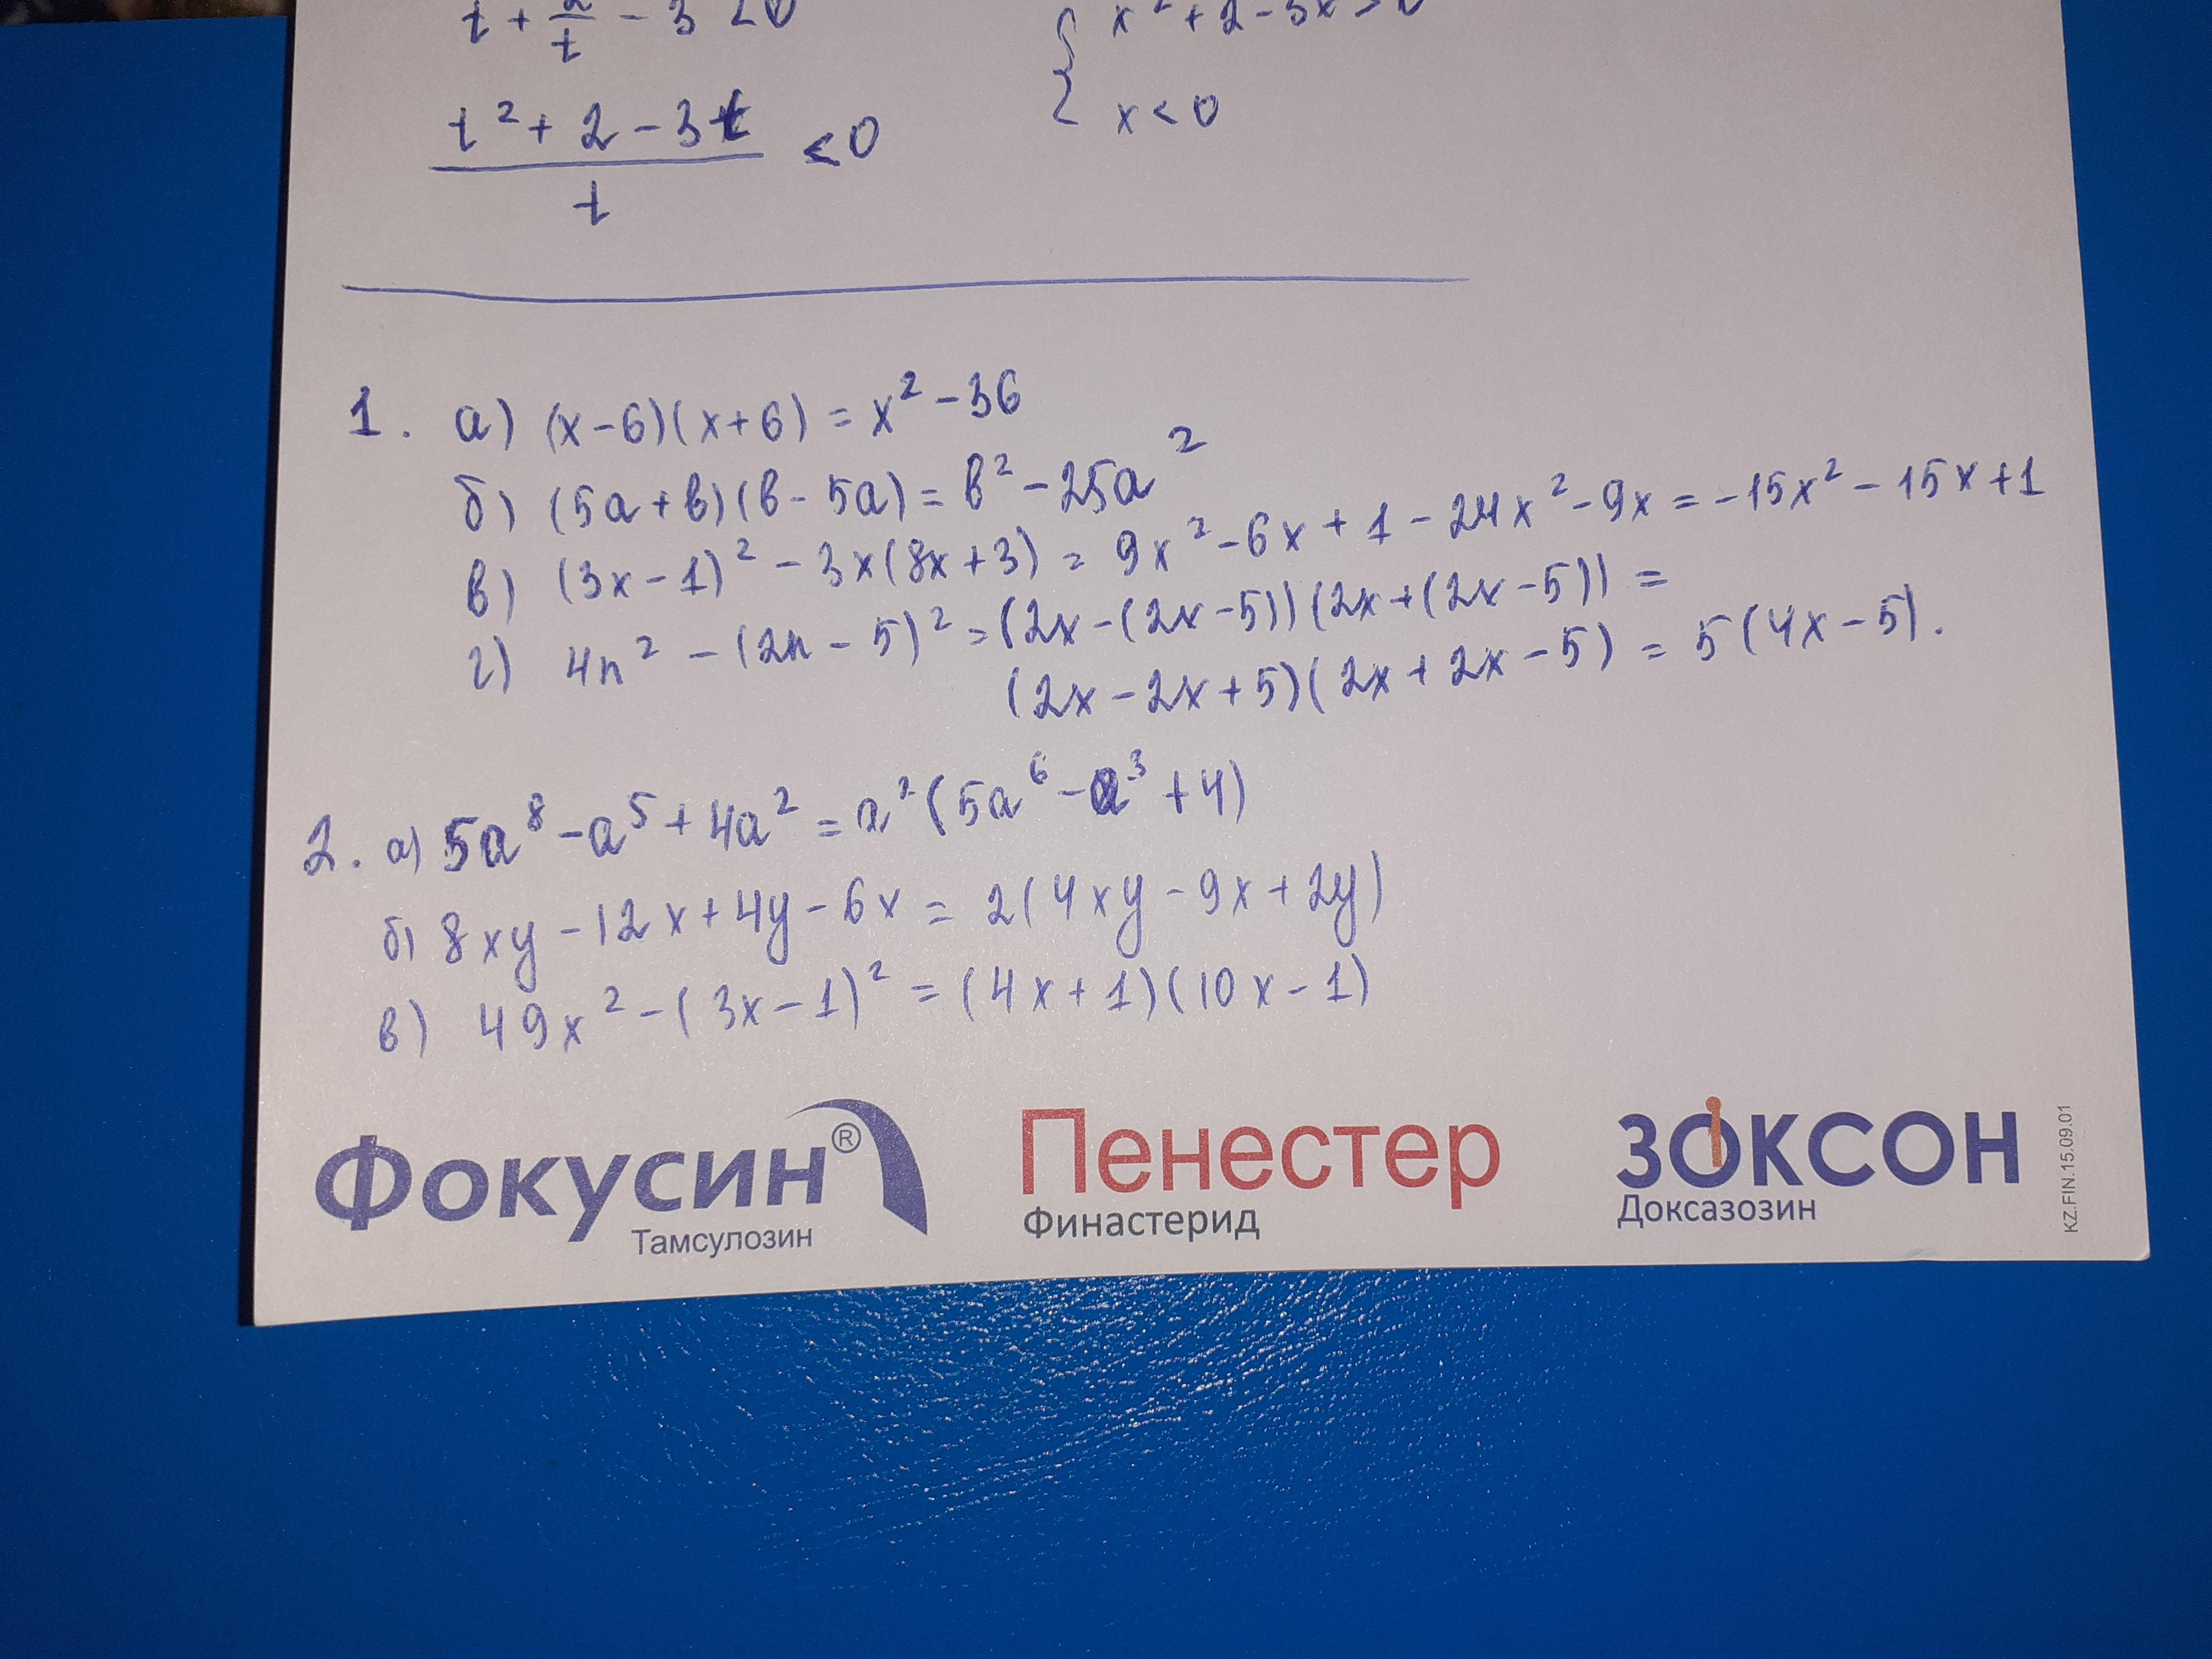 t + 2/t - 3 < 0
{ x² + 2 - 3x > 0
x < 0
(t² + 2 - 3t)/t < 0
1. а) (x-6)(x+6) = x² - 36
б) (5a+b)(b-5a) = b² - 25a²
в) (3x-1)² - 3x(8x+3) = 9x² - 6x + 1 - 24x² - 9x = -15x² - 15x + 1
г) 4n² - (2n-5)² = (2x-(2x-5))(2x+(2x-5)) =
(2x-2x+5)(2x+2x-5) = 5(4x-5).
2. а) 5a⁸ - a⁵ + 4a² = a²(5a⁶ - a³ + 4)
б) 8xy - 12x + 4y - 6x = 2(4xy - 9x + 2y)
в) 49x² - (3x-1)² = (4x+1)(10x-1)
Фокусин®
Тамсулозин
Пенестер
Финастерид
ЗОКСОН
Доксазозин
KZ.FIN.15.09.01